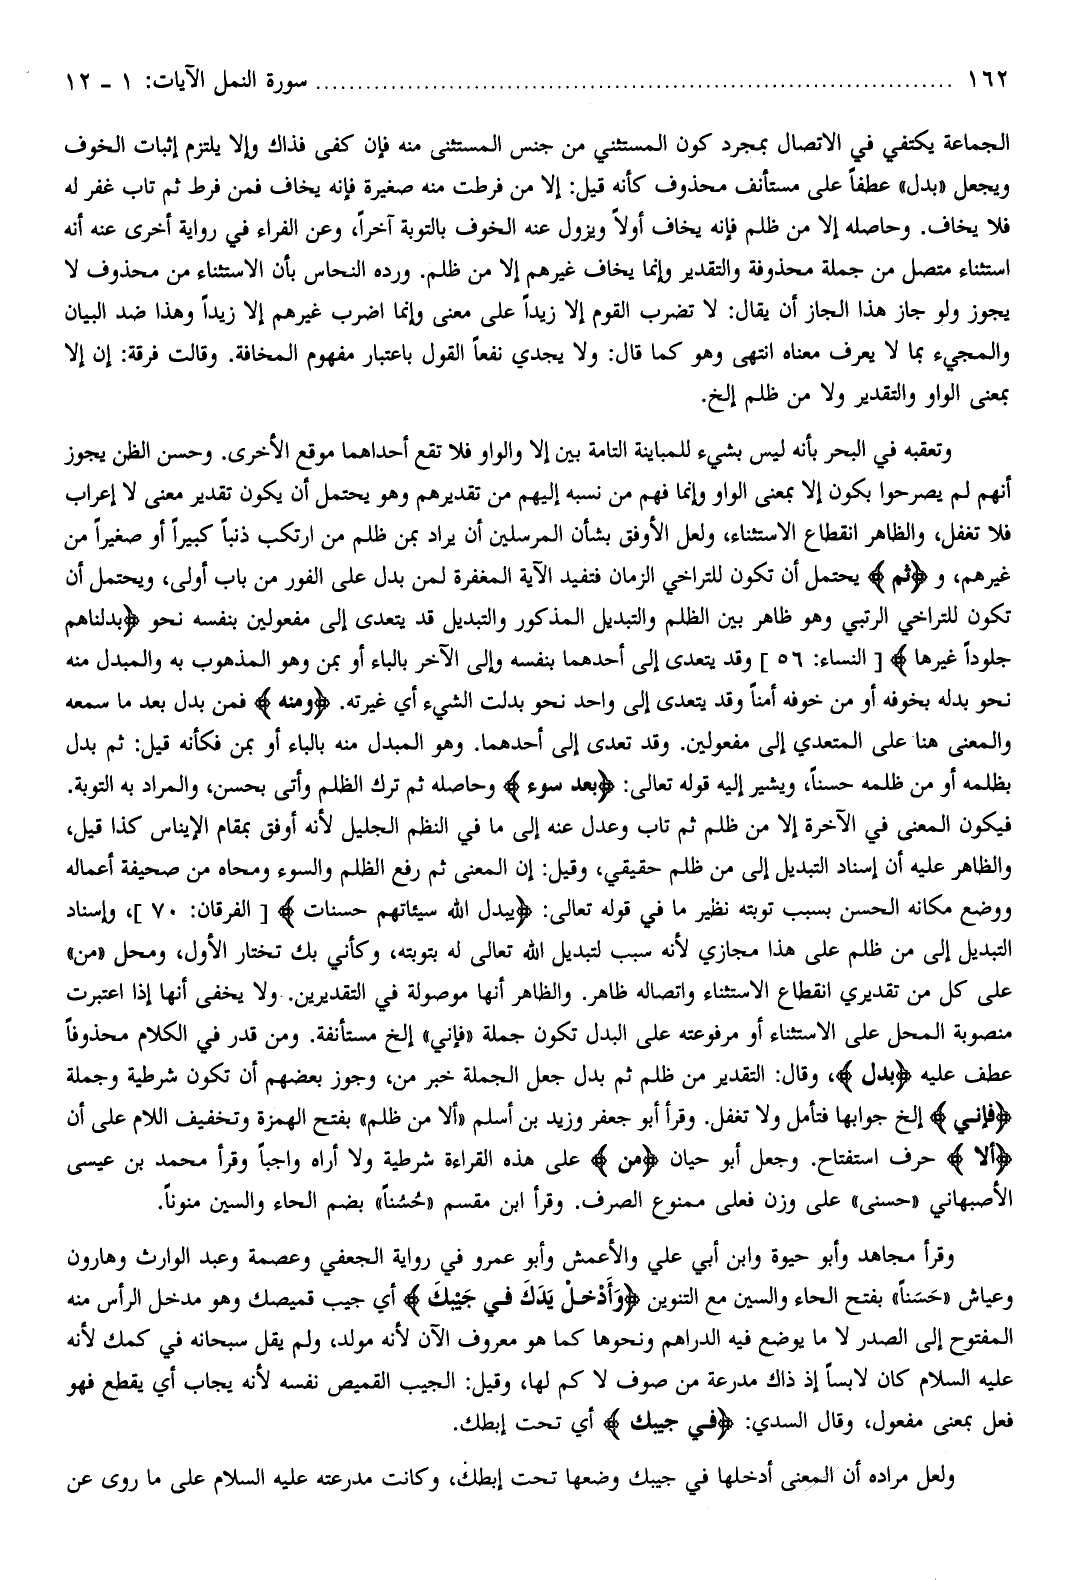 ١٦٢ ........................................................................ سورة النمل الآيات: ١ ـ ١٢
الجماعة يكتفي في الاتصال بمجرد كون المستثني من جنس المستثنى منه فإن كفى فذاك وإلا يلتزم إثبات الخوف
ويجعل «بدل» عطفاً على مستأنف محذوف كأنه قيل: إلا من فرطت منه صغيرة فإنه يخاف فمن فرط ثم تاب غفر له
فلا يخاف. وحاصله إلا من ظلم فإنه يخاف أولاً ويزول عنه الخوف بالتوبة آخراً، وعن الفراء في رواية أخرى عنه أنه
استثناء متصل من جملة محذوفة والتقدير وإنما يخاف غيرهم إلا من ظلم. ورده النحاس بأن الاستثناء من محذوف لا
يجوز ولو جاز هذا الجاز أن يقال: لا تضرب القوم إلا زيداً على معنى وإنما اضرب غيرهم إلا زيداً وهذا ضد البيان
والمجيء بما لا يعرف معناه انتهى وهو كما قال: ولا يجدي نفعاً القول باعتبار مفهوم المخافة. وقالت فرقة: إن إلا
بمعنى الواو والتقدير ولا من ظلم إلخ.
وتعقبه في البحر بأنه ليس بشيء للمباينة التامة بين إلا والواو فلا تقع أحداهما موقع الأخرى. وحسن الظن يجوز
أنهم لم يصرحوا بكون إلا بمعنى الواو وإنما فهم من نسبه إليهم من تقديرهم وهو يحتمل أن يكون تقدير معنى لا إعراب
فلا تغفل، والظاهر انقطاع الاستثناء، ولعل الأوفق بشأن المرسلين أن يراد بمن ظلم من ارتكب ذنباً كبيراً أو صغيراً من
غيرهم، و ﴿ثم ﴾ يحتمل أن تكون للتراخي الزمان فتفيد الآية المغفرة لمن بدل على الفور من باب أولى، ويحتمل أن
تكون للتراخي الرتبي وهو ظاهر بين الظلم والتبديل المذكور والتبديل قد يتعدى إلى مفعولين بنفسه نحو ﴿بدلناهم
جلوداً غيرها ﴾ [ النساء: ٥٦ ] وقد يتعدى إلى أحدهما بنفسه وإلى الآخر بالباء أو بمن وهو المذهوب به والمبدل منه
نحو بدله بخوفه أو من خوفه أمناً وقد يتعدى إلى واحد نحو بدلت الشيء أي غيرته. ﴿ومنه ﴾ فمن بدل بعد ما سمعه
والمعنى هنا على المتعدي إلى مفعولين. وقد تعدى إلى أحدهما. وهو المبدل منه بالباء أو بمن فكأنه قيل: ثم بدل
بظلمه أو من ظلمه حسناً، ويشير إليه قوله تعالى: ﴿بعد سوء ﴾ وحاصله ثم ترك الظلم وأتى بحسن، والمراد به التوبة.
فيكون المعنى في الآخرة إلا من ظلم ثم تاب وعدل عنه إلى ما في النظم الجليل لأنه أوفق بمقام الإيناس كذا قيل،
والظاهر عليه أن إسناد التبديل إلى من ظلم حقيقي، وقيل: إن المعنى ثم رفع الظلم والسوء ومحاه من صحيفة أعماله
ووضع مكانه الحسن بسبب توبته نظير ما في قوله تعالى: ﴿يبدل الله سيئاتهم حسنات ﴾ [ الفرقان: ٧٠ ]، وإسناد
التبديل إلى من ظلم على هذا مجازي لأنه سبب لتبديل الله تعالى له بتوبته، وكأني بك تختار الأول، ومحل «من»
على كل من تقديري انقطاع الاستثناء واتصاله ظاهر. والظاهر أنها موصولة في التقديرين. ولا يخفى أنها إذا اعتبرت
منصوبة المحل على الاستثناء أو مرفوعته على البدل تكون جملة «فإني» إلخ مستأنفة. ومن قدر في الكلام محذوفاً
عطف عليه ﴿بدل ﴾، وقال: التقدير من ظلم ثم بدل جعل الجملة خبر من، وجوز بعضهم أن تكون شرطية وجملة
﴿فإني ﴾ إلخ جوابها فتأمل ولا تغفل. وقرأ أبو جعفر وزيد بن أسلم «ألا من ظلم» بفتح الهمزة وتخفيف اللام على أن
﴿ألا ﴾ حرف استفتاح. وجعل أبو حيان ﴿من ﴾ على هذه القراءة شرطية ولا أراه واجباً وقرأ محمد بن عيسى
الأصبهاني «حسنى» على وزن فعلى ممنوع الصرف. وقرأ ابن مقسم «حُسُناً» بضم الحاء والسين منوناً.
وقرأ مجاهد وأبو حيوة وابن أبي علي والأعمش وأبو عمرو في رواية الجعفي وعصمة وعبد الوارث وهارون
وعياش «حَسَناً» بفتح الحاء والسين مع التنوين ﴿وَأَدْخلْ يَدَكَ في جَيْبكَ ﴾ أي جيب قميصك وهو مدخل الرأس منه
المفتوح إلى الصدر لا ما يوضع فيه الدراهم ونحوها كما هو معروف الآن لأنه مولد، ولم يقل سبحانه في كمك لأنه
عليه السلام كان لابساً إذ ذاك مدرعة من صوف لا كم لها، وقيل: الجيب القميص نفسه لأنه يجاب أي يقطع فهو
فعل بمعنى مفعول، وقال السدي: ﴿في جيبك ﴾ أي تحت إبطك.
ولعل مراده أن المعنى أدخلها في جيبك وضعها تحت إبطك، وكانت مدرعته عليه السلام على ما روى عن